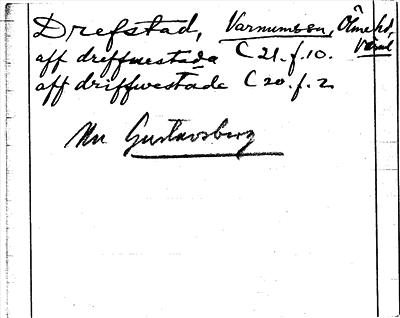 Drefstad, Varnumssn, Ölme hd,
Värml
aff driffwestada C 21. f. 10.
aff driffwestade C 20. f. 2
Nu Gustavsberg